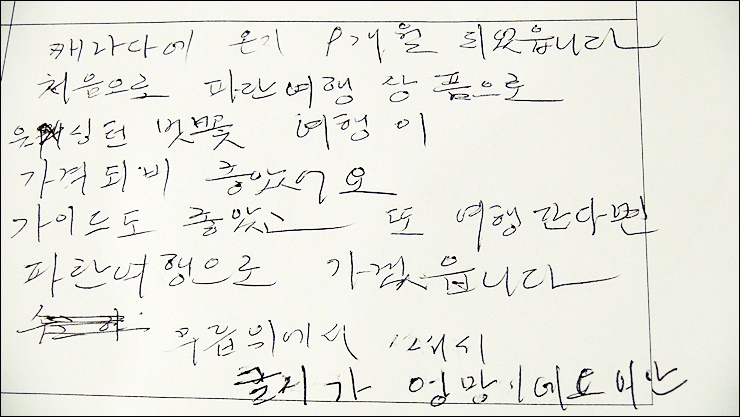 캐나다에 온지 9개월 되었읍니다
처음으로 파란여행 상품으로
워싱턴 벗꽃 여행이
가격되비 좋았어요
가이드도 좋았고 또 여행간다면
파란여행으로 가겠읍니다
무릎위에서 써서
글씨가 엉망이에요 미안